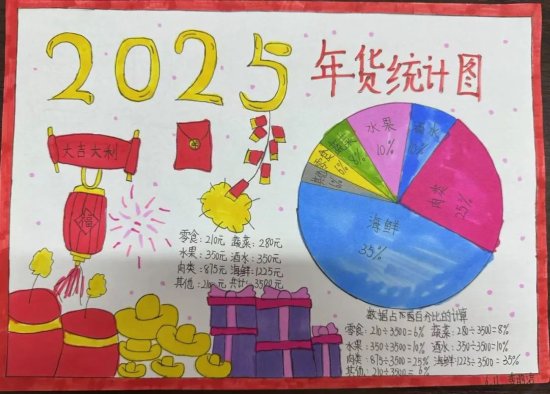 2025
年货统计图
大吉大利
福
水果
10%
酒水
10%
蔬菜
8%
肉类
25%
海鲜
35%
零食:210元 蔬菜:280元
水果:350元 酒水:350元
肉类:875元 海鲜:1225元
其他:210元 共计:3500元
数据占下面百分比的计算
零食:210÷3500=6% 蔬菜:280÷3500=8%
水果:350÷3500=10% 酒水:350÷3500=10%
肉类:875÷3500=25% 海鲜:1225÷3500=35%
其他:210÷3500=6%